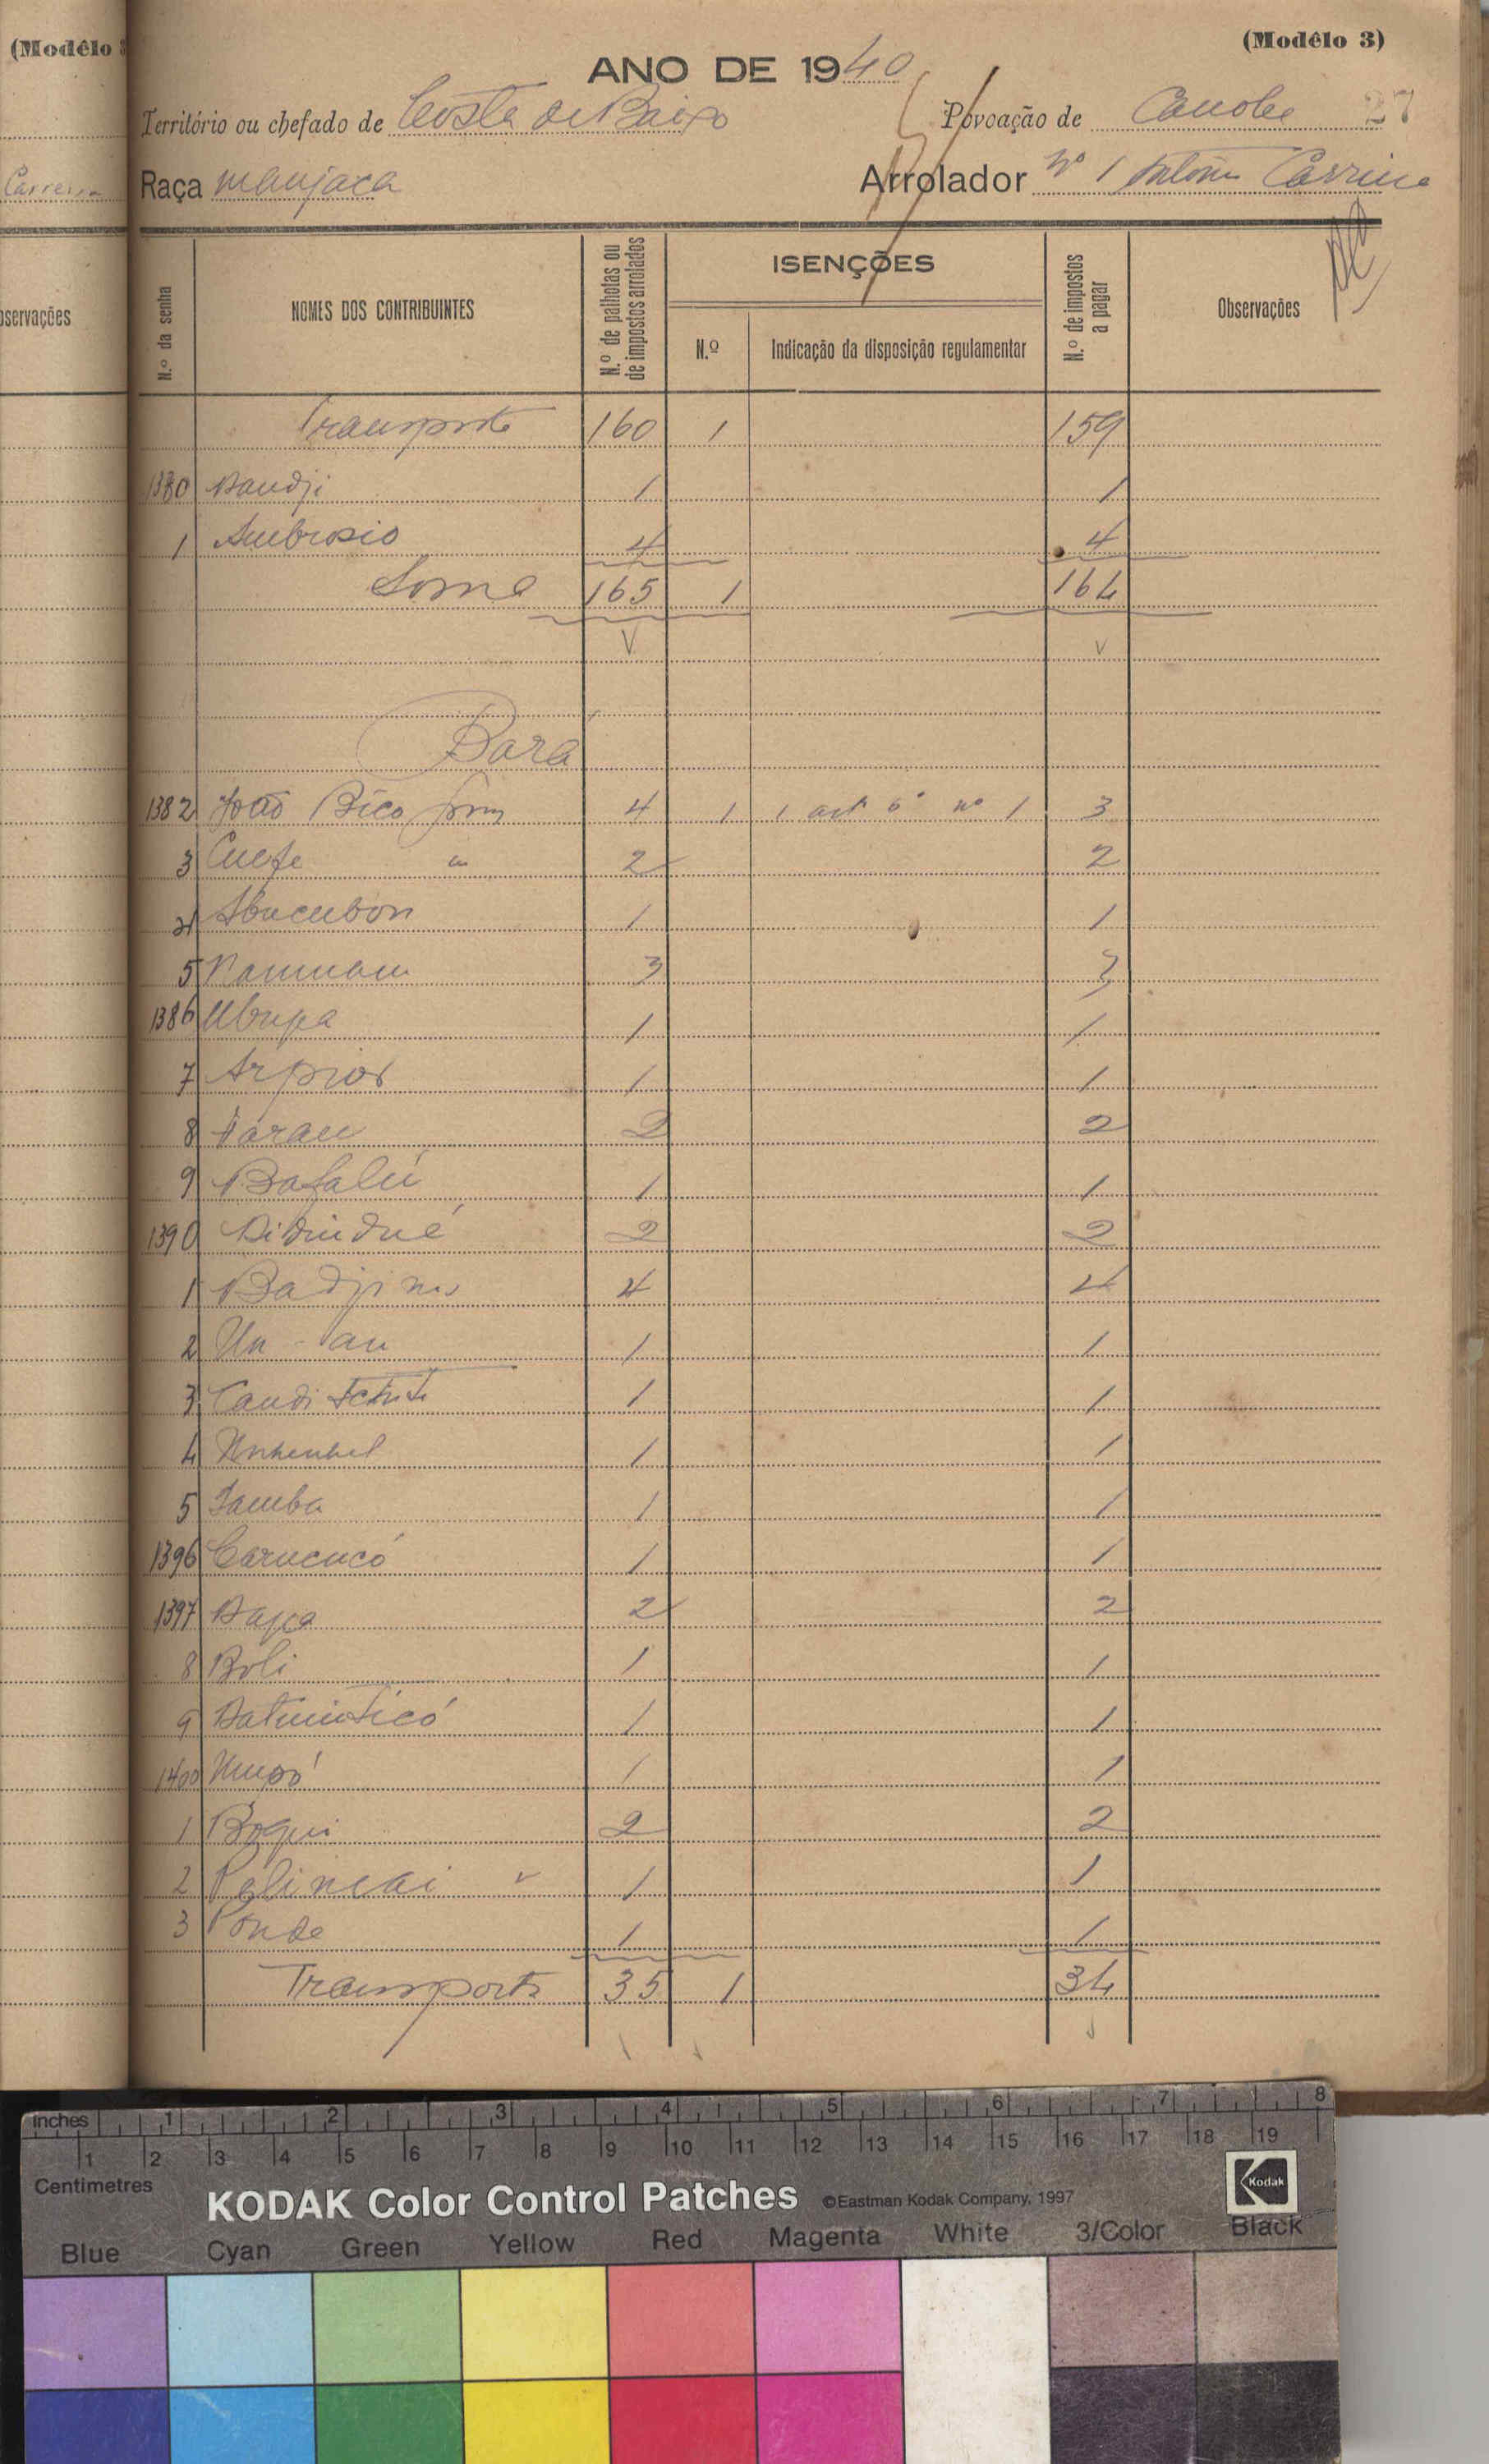 (Modêlo 3
(Modêlo 3)
ANO DE 1940
Território ou chefado de Costa de Baixo
Povoação de Canobe 27
Carreira
Raça manjaca
Arrolador Nº 1 António Carreira
N.º da senha
NOMES DOS CONTRIBUINTES
N.º de palhotas ou de impostos arrolados
ISENÇÕES
N.º
Indicação da disposição regulamentar
N.º de impostos a pagar
Observações
bservações
Transporte 160 1 159
1380 Dandji 1 1
1 Ambrosio 4 4
Soma 165 1 164
Bara
1382 João Bico 4 1 1 artº 6º nº 1 3
3 Cuefe " 2 2
4 Abucubon 1 1
5 3 3
1386 Ubupa 1 1
7 1 1
8 2 2
9 Bafalú 1 1
1390 2 2
1 4 4
2 1 1
3 1 1
4 1 1
5 Samba 1 1
1396 Carucucó 1 1
1397 Dapa 2 2
8 Boli 1 1
9 1 1
1400 1 1
1 Boqui 2 2
2 1 1
3 Ponde 1 1
Transporte 35 1 34
inches 1 2 3 4 5 6 7 8
1 2 3 4 5 6 7 8 9 10 11 12 13 14 15 16 17 18 19
Centimetres
KODAK Color Control Patches ©Eastman Kodak Company, 1997 Kodak
Blue Cyan Green Yellow Red Magenta White 3/Color Black